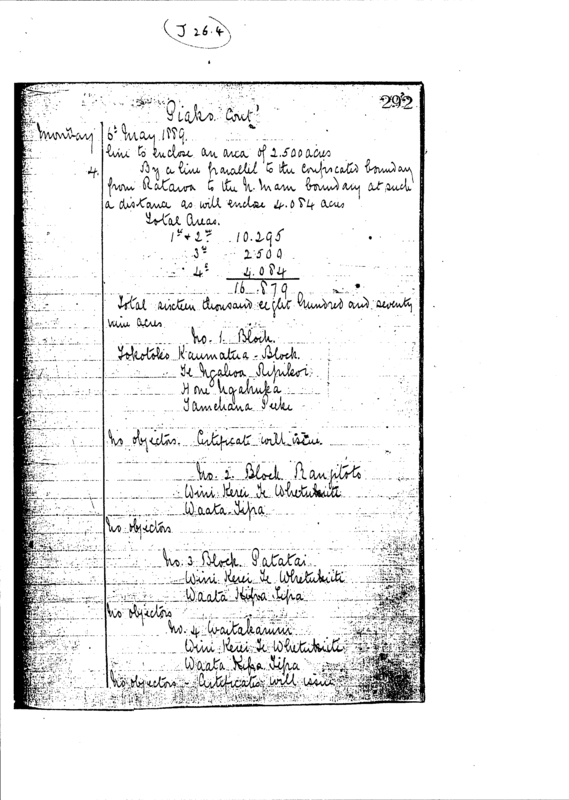 J 26.4
292
Piako Cont^d
Monday 6th May 1889
line to enclose an area of 2.500 acres
4. By a line parallel to the confiscated boundary
from Ratawa to the N. Main boundary at such
a distance as will enclose 4.084 acres
Total Areas.
1st + 2nd 10.295
3rd 2500
4th 4.084
16.879
Total sixteen thousand eight hundred and seventy
nine acres
No. 1. Block.
Tokotoko Kaumatua - Block.
Te Ngaloa
Hone Ngahuka
Tamehana
No objectors. Certificate will issue.
No. 2. Block Rangitoto
Wini Kerei Te Whetuiti
Waata Tipa
No objectors
No. 3 Block. Patatai
Wini Kerei Te Whetuiti
Waata Kipa Tipa
No objectors
No. 4 Waitakaruru
Wini Kerei Te Whetuiti
Waata Kipa Tipa
No objectors - Certificates will issue